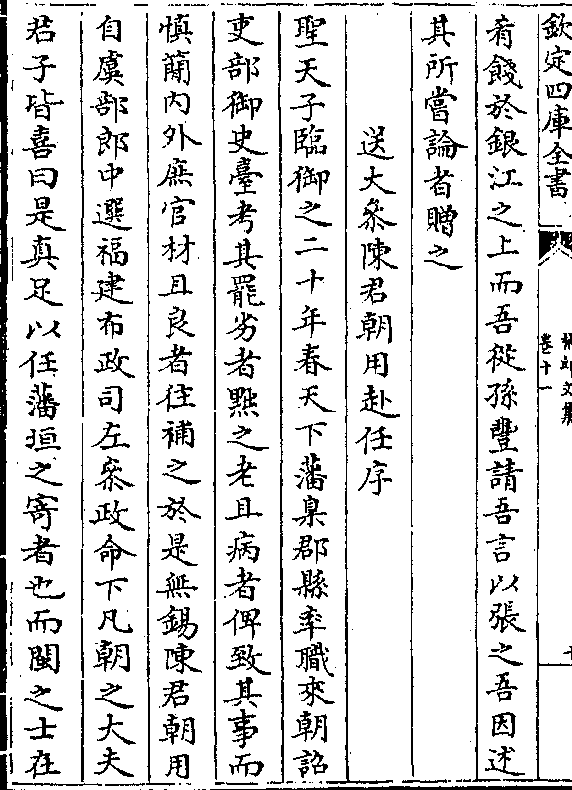 欽定四庫全書
卷十一
有餞於銀江之上而吾從孫豐請吾言以張之吾因述
其所嘗論者贈之
送大叅陳君朝用赴任序
聖天子臨御之二十年春天下藩臬郡縣率職來朝詔
吏部御史臺考其罷劣者黜之老且病者俾致其事而
慎蕳内外庶官材且良者往補之於是無錫陳君朝用
自虞部郎中選福建布政司左叅政命下凡朝之大夫
君子皆喜曰是真足以任藩垣之寄者也而閩之士在